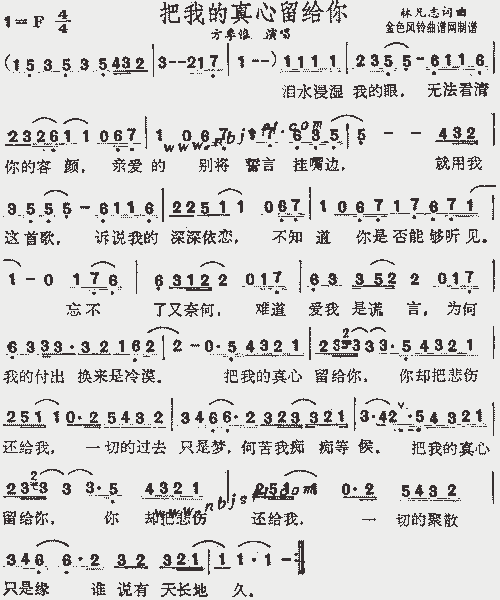 把我的真心留给你
1=F 4/4
方季惟 演唱
林凡志词曲
金色风铃曲谱网制谱
(15 3535 432 | 3--217 | 1--) 1111 | 2355-6111 |
泪水漫湿 我的眼， 无法看清
232611 067 | 1 067 17 635 | 5 - - 432 |
你的容 颜， 亲爱的 别将 誓言 挂嘴边， 就用我
www.nbjsl.com
3555-6116 | 22511 067 | 1067176 71 |
这首歌， 诉说我的 深深依恋， 不知 道 你是否能够听见。
1-0 176 | 63122 017 | 63 3522 017 |
忘不 了又奈何， 难道 爱我 是谎 言， 为何
6333·32162 | 2-0·54321 | 23233·54321 |
我的付出 换来是冷漠。 把我的真心 留给你， 你却把悲伤
25110·25432 | 3466·2323321 | 3·42·54321 |
还给我， 一切的过去 只是梦，何苦我痴 痴等候。 把我的真心
2323 3 3·5 4321 | 251 0·2 5432 |
留给你， 你 却把悲伤 还给我， 一 切的聚散
www.nbjsl.com
346 6·2 32 3321 | 1 1·1-
只是缘 谁 说有 天长地 久。